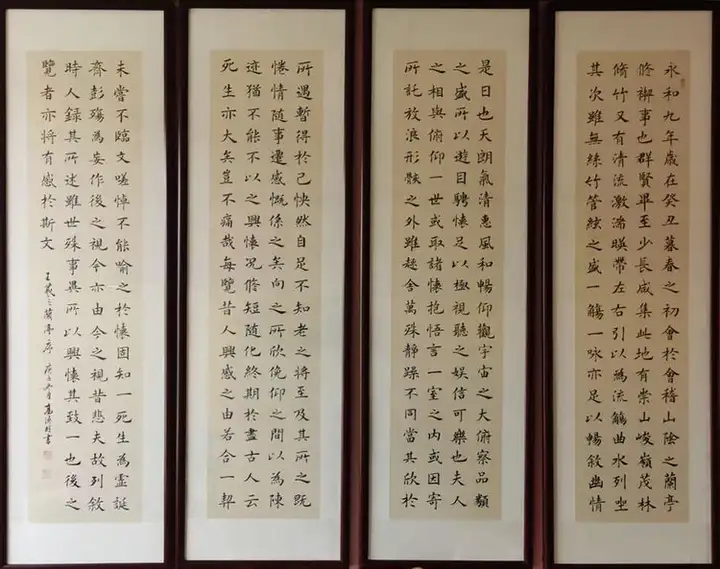 永和九年歲在癸丑暮春之初會於會稽山陰之蘭亭
修禊事也群賢畢至少長咸集此地有崇山峻嶺茂林
脩竹又有清流激湍暎帶左右引以為流觴曲水列坐
其次雖無絲竹管絃之盛一觴一咏亦足以暢敘幽情
是日也天朗氣清惠風和暢仰觀宇宙之大俯察品類
之盛所以遊目騁懷足以極視聽之娛信可樂也夫人
之相與俯仰一世或取諸懷抱悟言一室之內或因寄
所託放浪形骸之外雖趣舍萬殊靜躁不同當其欣於
所遇暫得於己怏然自足不知老之將至及其所之既
惓情隨事遷感慨係之矣向之所欣俛仰之間以為陳
迹猶不能不以之興懷況脩短隨化終期於盡古人云
死生亦大矣豈不痛哉每覽昔人興感之由若合一契
未嘗不臨文嗟悼不能喻之於懷固知一死生為虛誕
齊彭殤為妄作後之視今亦由今之視昔悲夫故列敘
時人録其所述雖世殊事異所以興懷其致一也後之
覽者亦將有感於斯文
王羲之蘭亭序 書